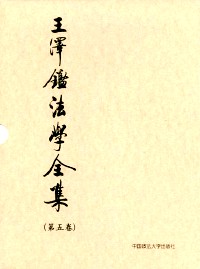 王澤鑑法學全集
(第五卷)
中国政法大学出版社